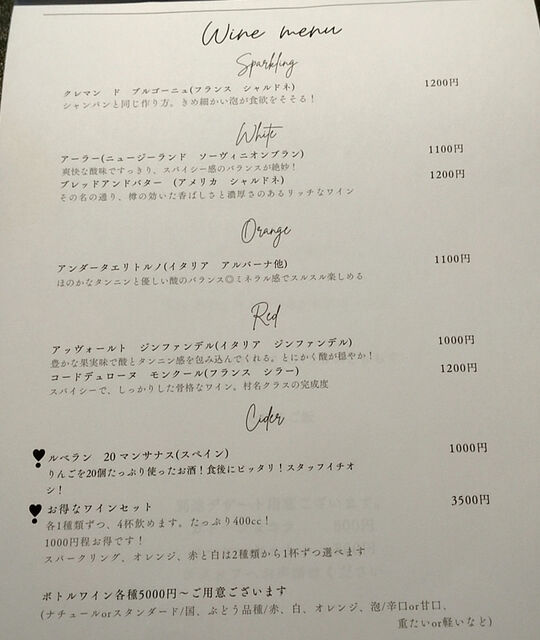 Wine menu
Sparkling
クレマン ド ブルゴーニュ(フランス シャルドネ) 1200円
シャンパンと同じ作り方。きめ細かい泡が食欲をそそる！
White
アーラー(ニュージーランド ソーヴィニオンブラン) 1100円
爽快な酸味ですっきり、スパイシー感のバランスが絶妙！
ブレッドアンドバター (アメリカ シャルドネ) 1200円
その名の通り、樽の効いた香ばしさと濃厚さのあるリッチなワイン
Orange
アンダータエリトルノ(イタリア アルバーナ他) 1100円
ほのかなタンニンと優しい酸のバランス◎ミネラル感でスルスル楽しめる
Red
アッヴォールト ジンファンデル(イタリア ジンファンデル) 1000円
豊かな果実味で酸とタンニン感を包み込んでくれる。とにかく酸が穏やか！
コードデュローヌ モンクール(フランス シラー) 1200円
スパイシーで、しっかりした骨格なワイン。村名クラスの完成度
Cider
ルベラン 20マンサナス(スペイン) 1000円
りんごを20個たっぷり使ったお酒！食後にピッタリ！スタッフイチオ
シ！
お得なワインセット 3500円
各1種類ずつ、4杯飲めます。たっぷり400cc！
1000円程お得です！
スパークリング、オレンジ、赤と白は2種類から1杯ずつ選べます
ボトルワイン各種5000円～ご用意ございます
(ナチュールorスタンダード/国、ぶどう品種/赤、白、オレンジ、泡/辛口or甘口、
重たいor軽いなど)